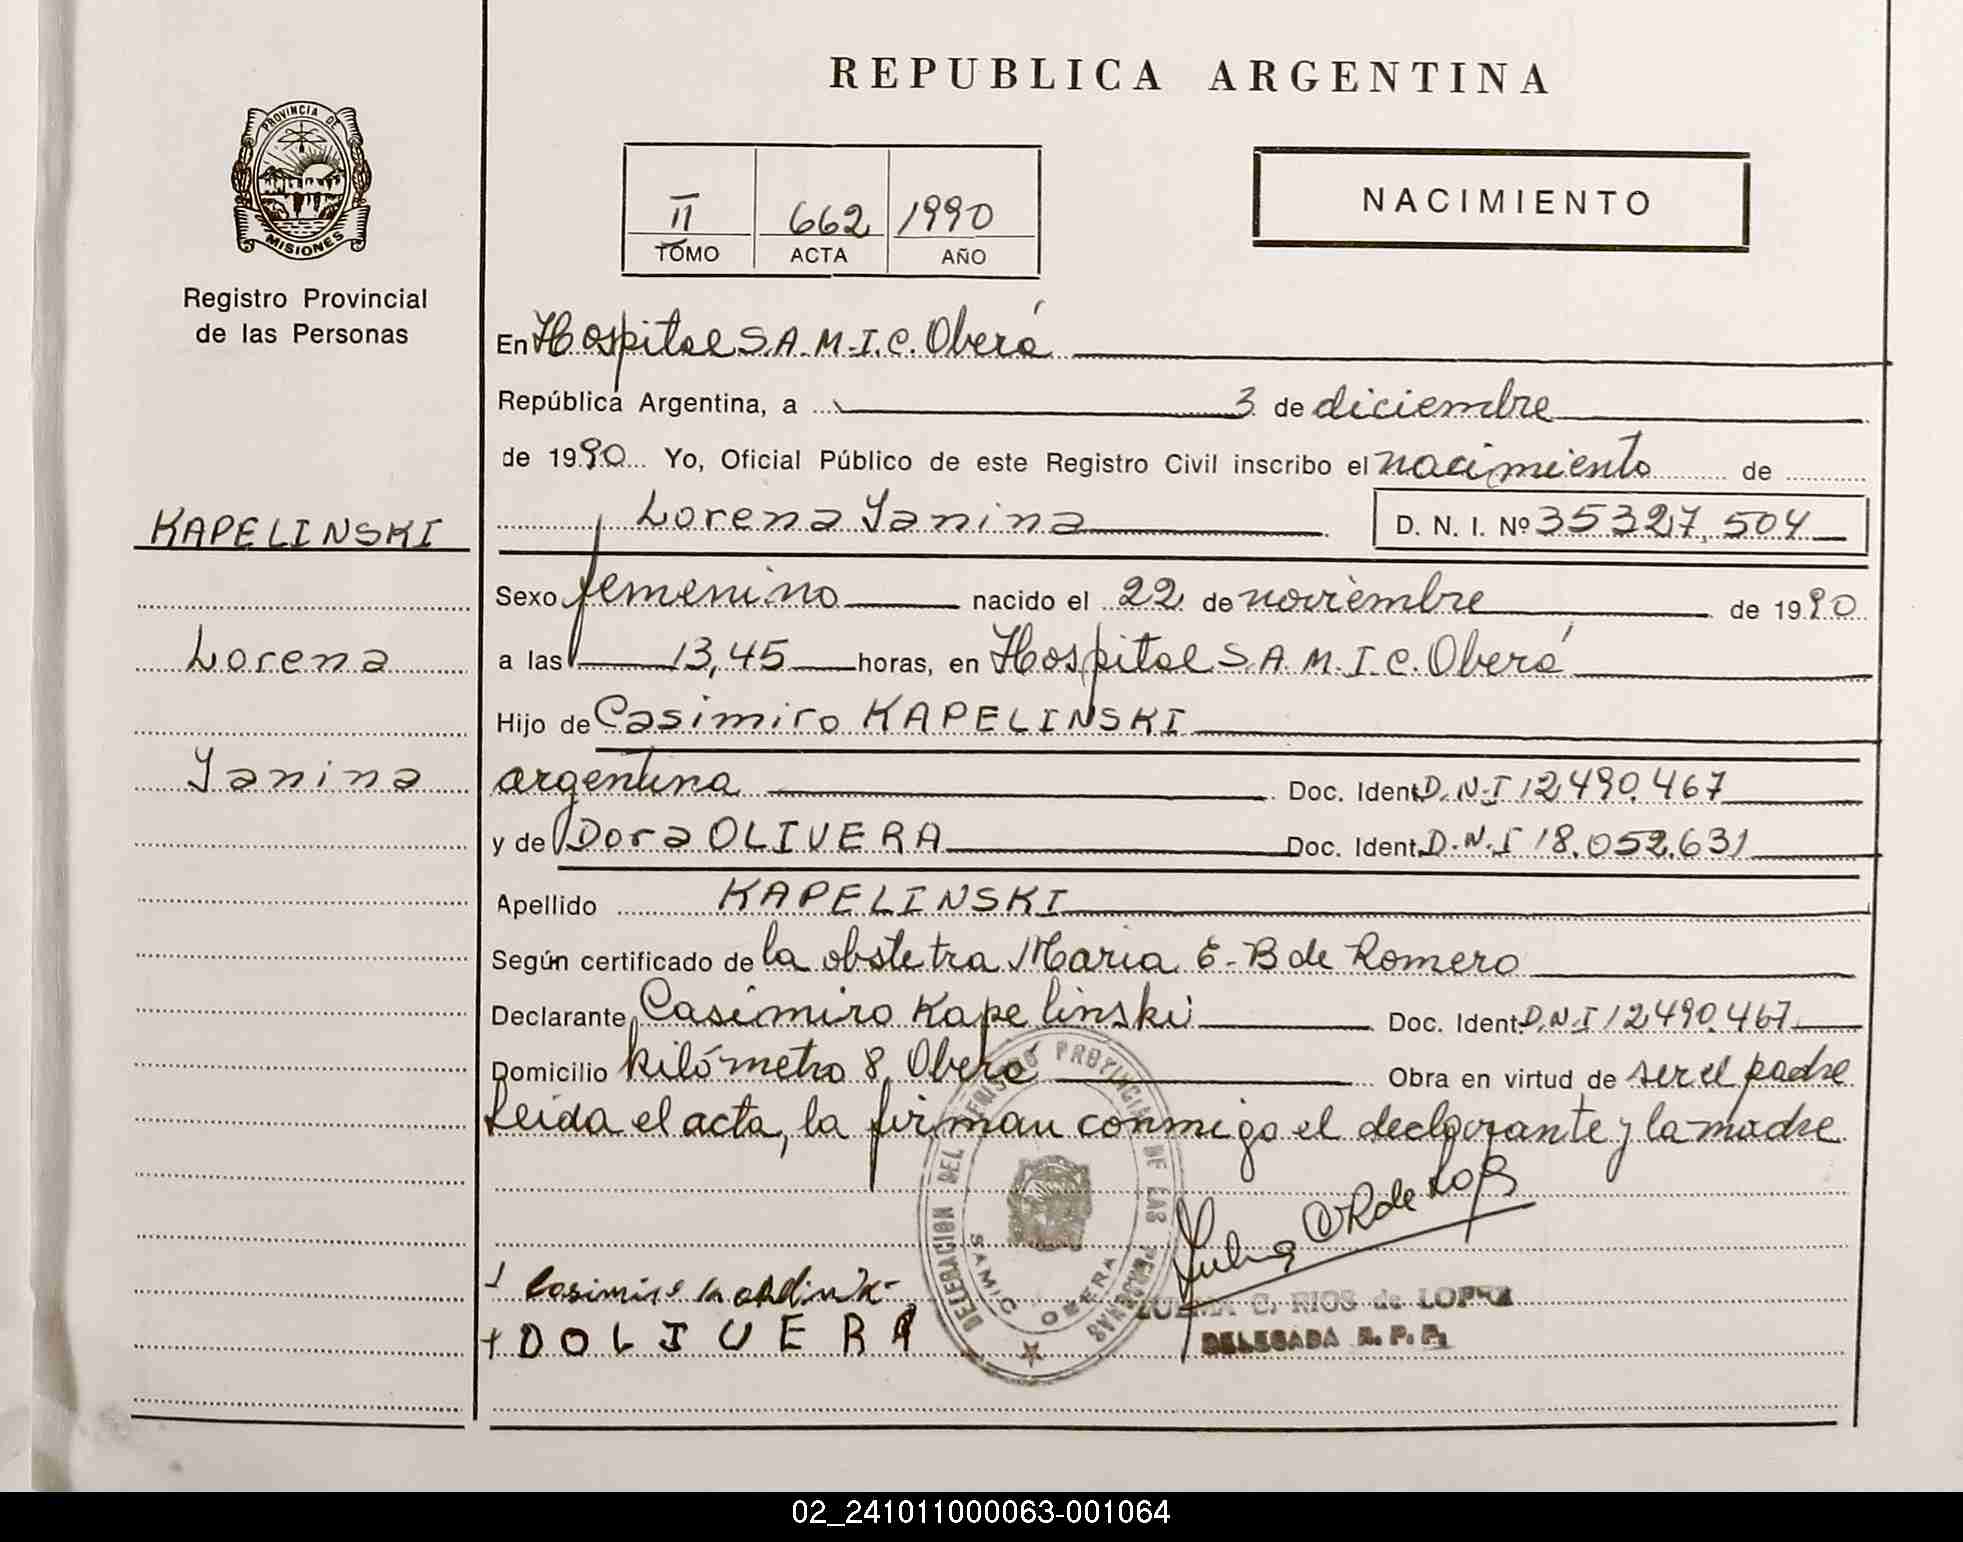 REPUBLICA ARGENTINA
PROVINCIA DE
MISIONES
Registro Provincial
de las Personas
II 662 1990
TOMO ACTA AÑO
NACIMIENTO
En Hospital S.A.M.I.C. Oberá
República Argentina, a 3 de diciembre
de 1990 Yo, Oficial Público de este Registro Civil inscribo el nacimiento de
KAPELINSKI
Lorena Yanina D. N. I. Nº 35327,504
Sexo femenino nacido el 22 de noviembre de 1990
Lorena
a las 13,45 horas, en Hospital S.A.M.I.C. Oberá
Hijo de Casimiro KAPELINSKI
Yanina
argentina Doc. Ident. D.N.I 12490.467
y de Dora OLIVERA Doc. Ident. D.N.I 18.052.631
Apellido KAPELINSKI
Según certificado de la obstetra Maria E. B de Romero
Declarante Casimiro Kapelinski Doc. Ident. D.N.I 12490.467
Domicilio kilómetro 8 Oberá Obra en virtud de ser el padre
Leida el acta, la firman conmigo el declarante y la madre
DELEGACION DEL REGISTRO PROVINCIAL DE LAS PERSONAS
SAMIC OBERA
Casimiro
D OLIVERA
ZULMA C. RIOS de LOPEZ
DELEGADA R. P. P.
02_241011000063-001064